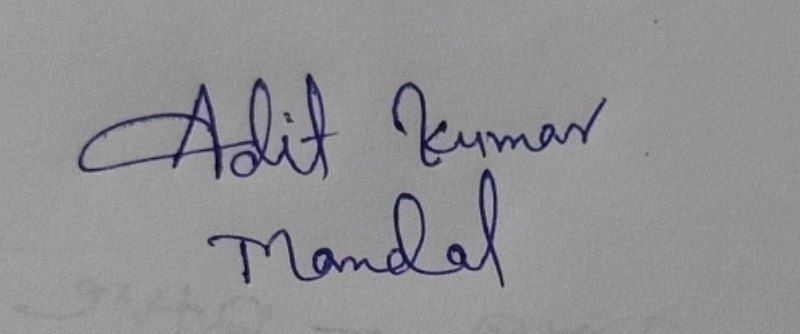 Adit Kumar
Mandal